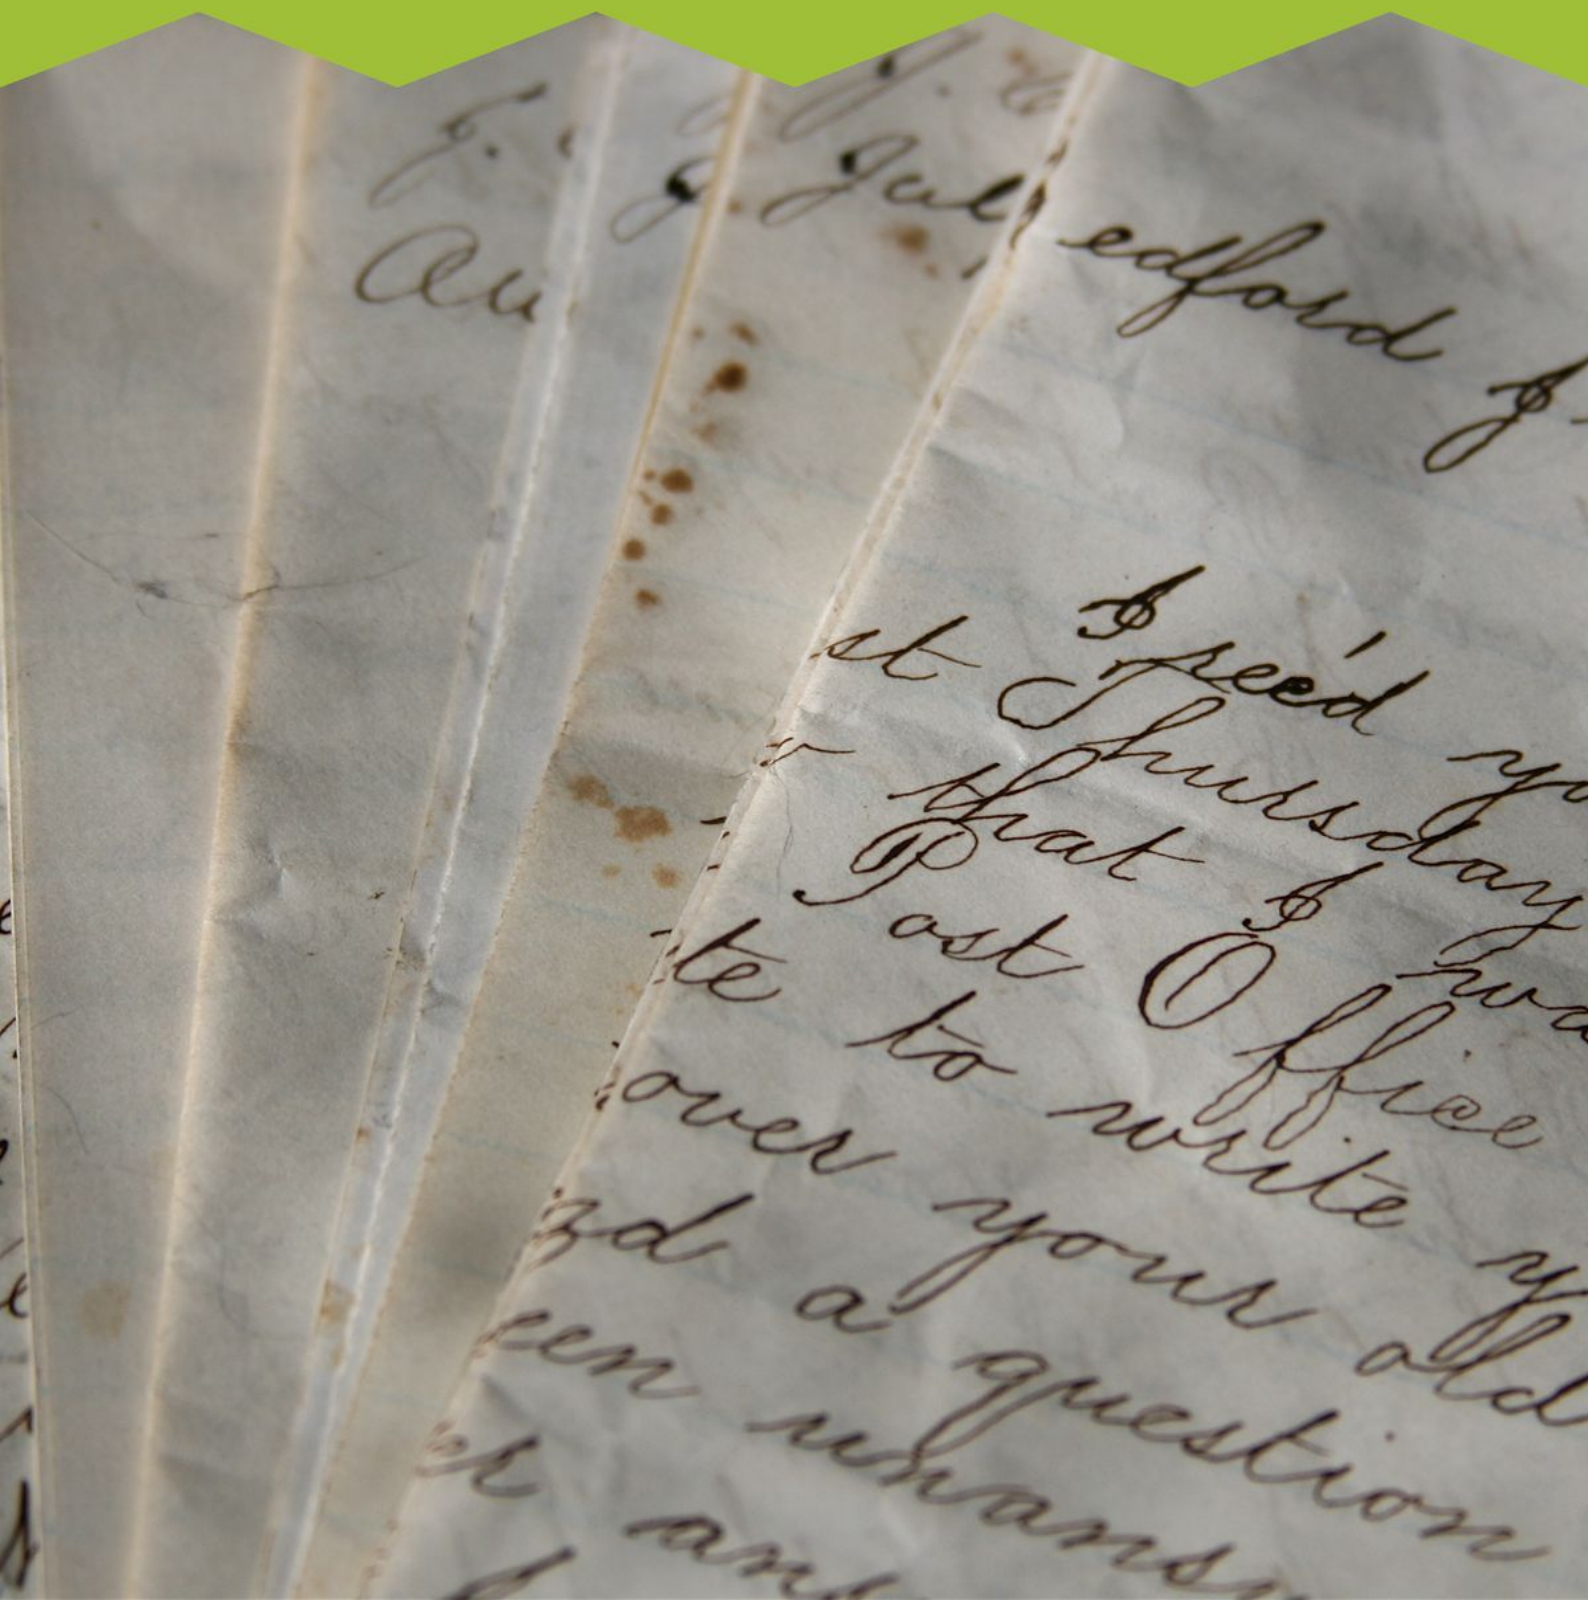 Au
Jul
edford I
I rec'd yo
st Thursday
that I wa
Post Office
te to write y
over your old
zd a question
een unansw
er ans